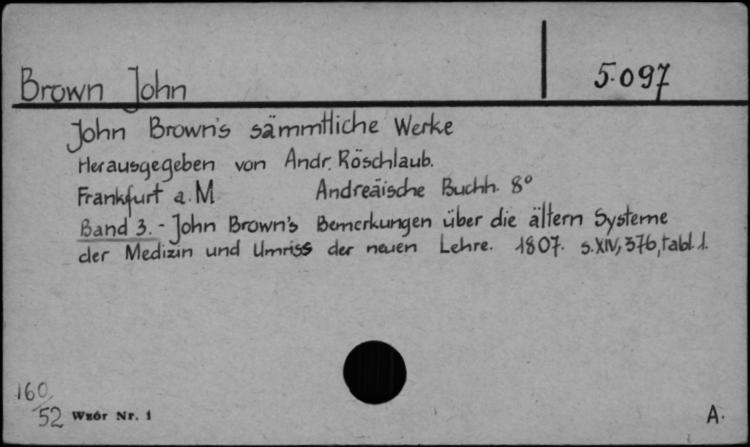 Brown John
5.097
John Brown's sämmtliche Werke
Herausgegeben von Andr. Röschlaub.
Frankfurt a. M Andreäische Buchh. 8°
Band 3. - John Brown's Bemerkungen über die ältern Systeme
der Medizin und Umriss der neuen Lehre. 1807. s. XIV, 376, tabl. 1.
160/52
Wzór Nr. 1
A.